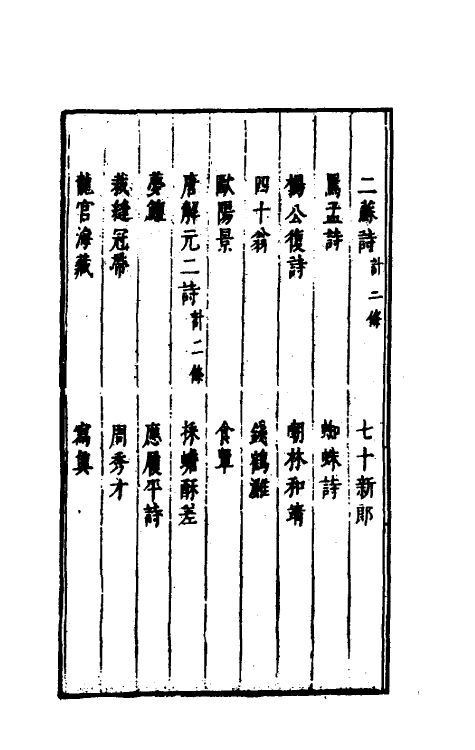 二蘇詩計二條
七十新郎
罵孟詩
蜘蛛詩
楊公復詩
嘲林和靖
四十翁
錢鶴灘
歐陽景
食蕈
唐解元二詩計二條
採蟾酥差
夢鱸
應履平詩
裁縫冠帶
周秀才
龍宮海藏
寫真